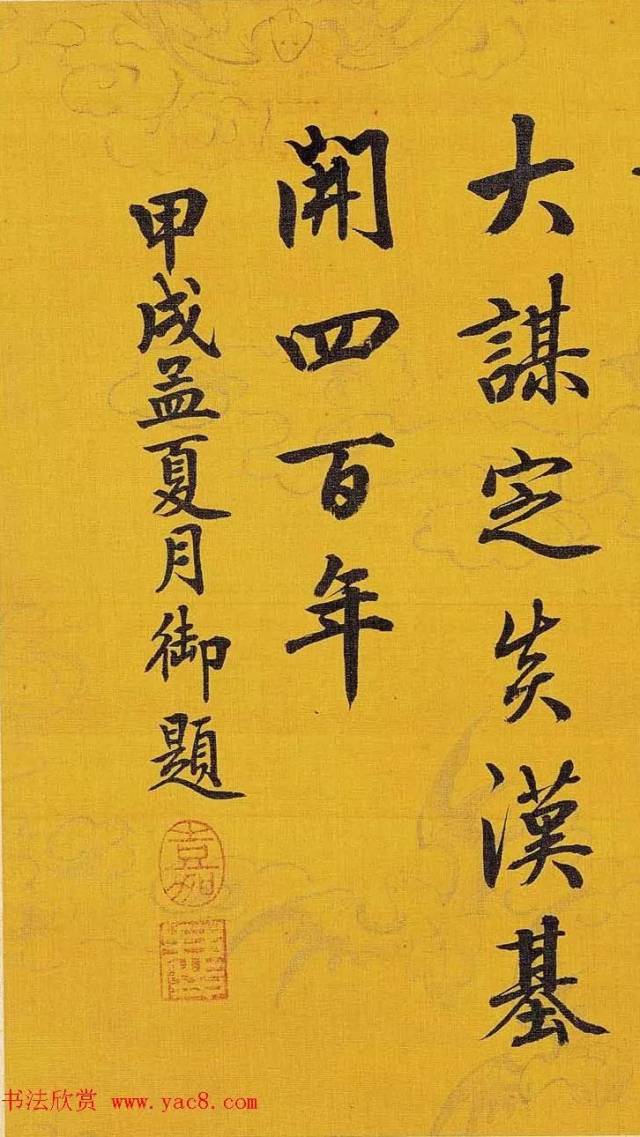 大謀定矣漢基
開四百年
甲戌孟夏月御題
嘉
书法欣赏 www.yac8.com